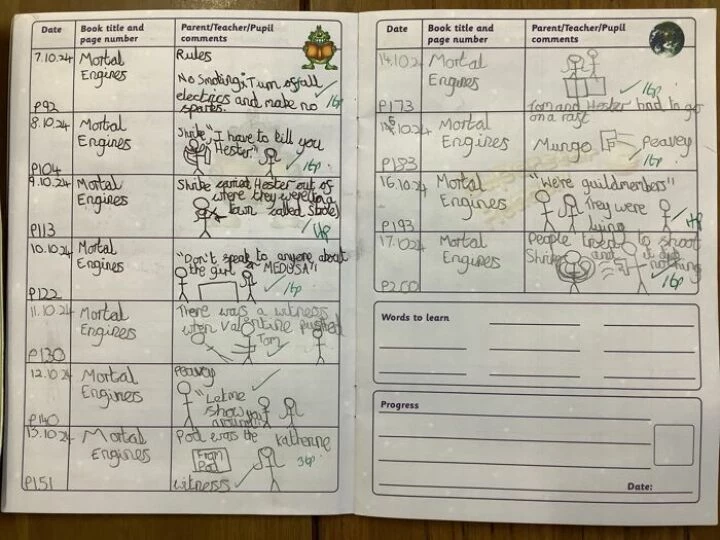 Date Book title and page number Parent/Teacher/Pupil comments
7.10.24 Mortal Engines
Rules
No Smoking, Turn of all
electrics and make no
sparks.
1hp
P92
8.10.24 Mortal Engines
Shrike "I have to kill you
Hester."
1hp
P104
9.10.24 Mortal Engines
Shrike carried Hester out of
where they were (in a
town called Stole)
P113
10.10.24 Mortal Engines
"Don't speak to anyone about
the girl or MEDUSA"!
1hp
P122
11.10.24 Mortal Engines
There was a witness
when Valentine pushed
Tom
P130
12.10.24 Mortal Engines
Peavey
"Let me
show you
around"
P140
13.10.24 Mortal Engines
Pod was the Katherine
From
Pod
witness
3hp
P151
Date Book title and page number Parent/Teacher/Pupil comments
14.10.2 Mortal Engines
1hp
Tom and Hester had to go
on a raft
P173
10.24 Mortal Engines
Mungo Peavey
1hp
P183
16.10.24 Mortal Engines
"We're guildmembers"
They were
lying
P193
17.10.24 Mortal Engines
People tried to shoot
Shrike and it did
nothing
1hp
P200
Words to learn
Progress
Date: